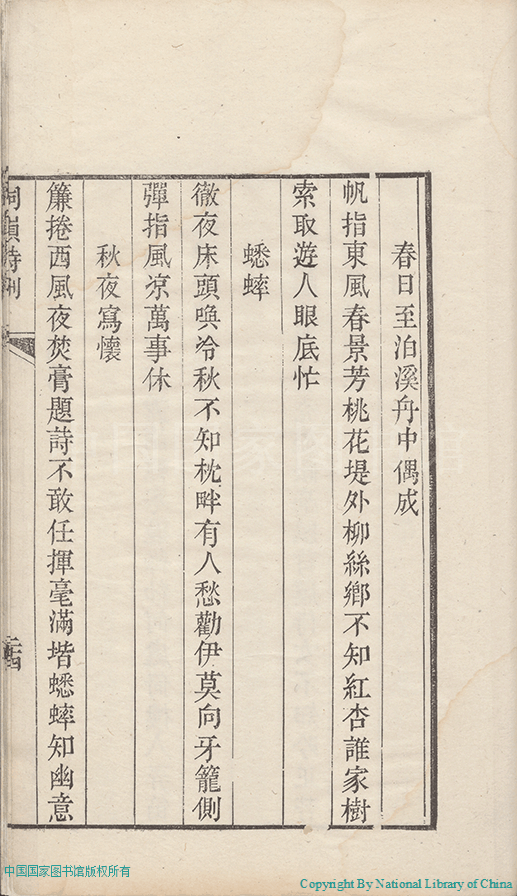 春日至泊溪舟中偶成
帆指東風春景芳桃花堤外柳絲鄉不知紅杏誰家樹
索取遊人眼底忙
蟋蟀
徹夜床頭喚冷秋不知枕畔有人愁勸伊莫向牙籠側
彈指風凉萬事休
秋夜寫懷
簾捲西風夜焚膏題詩不敢任揮毫滿堦蟋蟀知幽意
詩刪
二十四
中国国家图书馆版权所有
Copyright By National Library of China